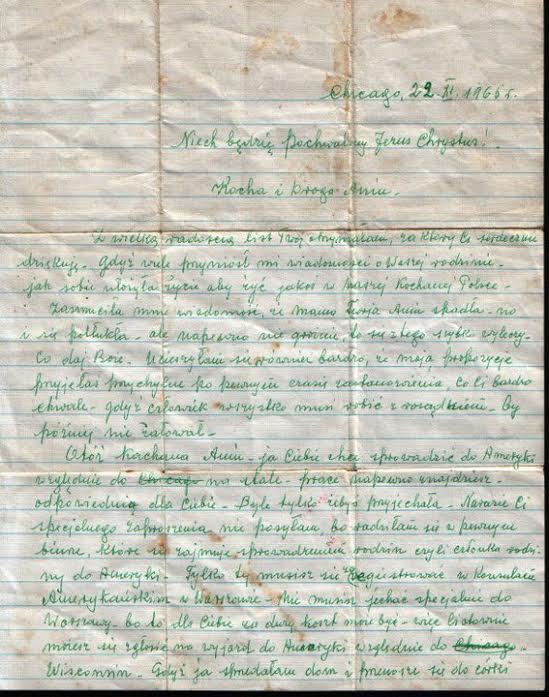 Chicago, 22. XI. 1965 r.
Niech będzię Pochwalony Jezus Chrystus!
Kocha i Droga Aniu.
Z wielką radością list Twój otrzymałam, za który Ci serdecznie
dziękuję. Gdyż wiele przyniósł mi wiadomości o Waszej rodzinie.
jak sobie ułożyła życie aby żyć jakoś w naszej Kochanej Polsce.
Zasmuciła mnie wiadomość, że mama Twoja Aniu spadła - no
i się potłukła - ale napewno nie groźnie, to się z tego szybko wyleczy.
Co daj Boże. Ucieszyłam się również bardzo, że moją propozycje
przyjęłaś przychylnie po pewnym czasie zastanowienia, co Ci bardzo
chwale - gdyż człowiek wszystko musi robić z rozsądkiem. By
później nie żałował -
Otóż Kochana Aniu - ja Ciebie chcę sprowadzić do Ameryki
względnie do Chicago na stałe - prace napewno znajdziesz -
odpowiednią dla Ciebie - Byle tylko żebyś przyjechała - Narazie Ci
specjalnego zaproszenia nie posyłam, bo radziłam się w pewnym
biurze, które się zajmuje sprowadzeniem rodzin czyli członka rodzi
ny do Ameryki - Tylko ty musisz się Zarejestrować w Konsulacie
Amerykańskim w Warszawie - Nie musisz jechać specjalnie do
Warszawy - bo to dla Ciebie za duży koszt może być - więc listownie
możesz się zgłosić na wyjazd do Ameryki względnie do Chicago -
Wisconsin. Gdyż ja sprzedałam dom i przenoszę się do córki